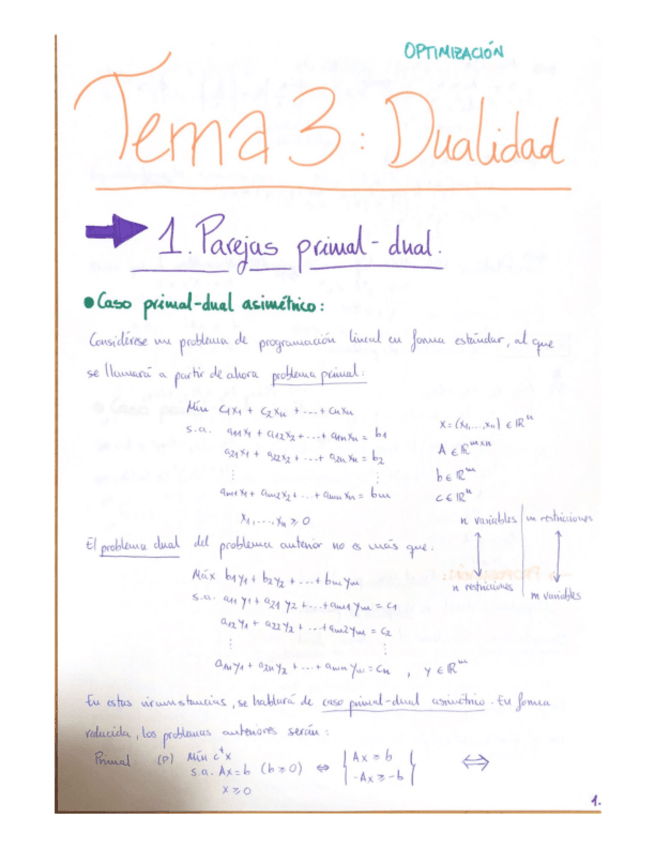 OPTIMIZACIÓN
Tema 3: Dualidad
1. Parejas primal-dual.
• Caso primal-dual asimétrico:
Considérese un problema de programación lineal en forma estándar, al que
se llamará a partir de ahora problema primal:
Mín c₁x₁ + c₂xₙ + ... + cₙxₙ
s.a. a₁₁x₁ + a₁₂x₂ + ... + a₁ₙxₙ = b₁
a₂₁x₁ + a₂₂x₂ + ... + a₂ₙxₙ = b₂
⋮ ⋮
aₘ₁x₁ + aₘ₂x₂ + ... + aₘₙxₙ = bₘ
x₁, ..., xₙ ≥ 0
x = (x₁, ..., xₙ) ∈ ℝⁿ
A ∈ ℝᵐˣⁿ
b ∈ ℝᵐ
c ∈ ℝⁿ
n variables | m restricciones
↕ ↕
n restricciones | m variables
El problema dual del problema anterior no es más que:
Máx b₁y₁ + b₂y₂ + ... + bₘyₘ
s.a. a₁₁y₁ + a₂₁y₂ + ... + aₘ₁yₘ = c₁
a₁₂y₁ + a₂₂y₂ + ... + aₘ₂yₘ = c₂
⋮ ⋮
a₁ₙy₁ + a₂ₙy₂ + ... + aₘₙyₘ = cₙ , y ∈ ℝᵐ
En estas circunstancias, se hablará de caso primal-dual asimétrico. En forma
reducida, los problemas anteriores serán:
Primal (P) Mín cᵗx
s.a. Ax = b (b ≥ 0) ⇔ { Ax ≥ b
-Ax ≥ -b } ⇔
x ≥ 0
1.